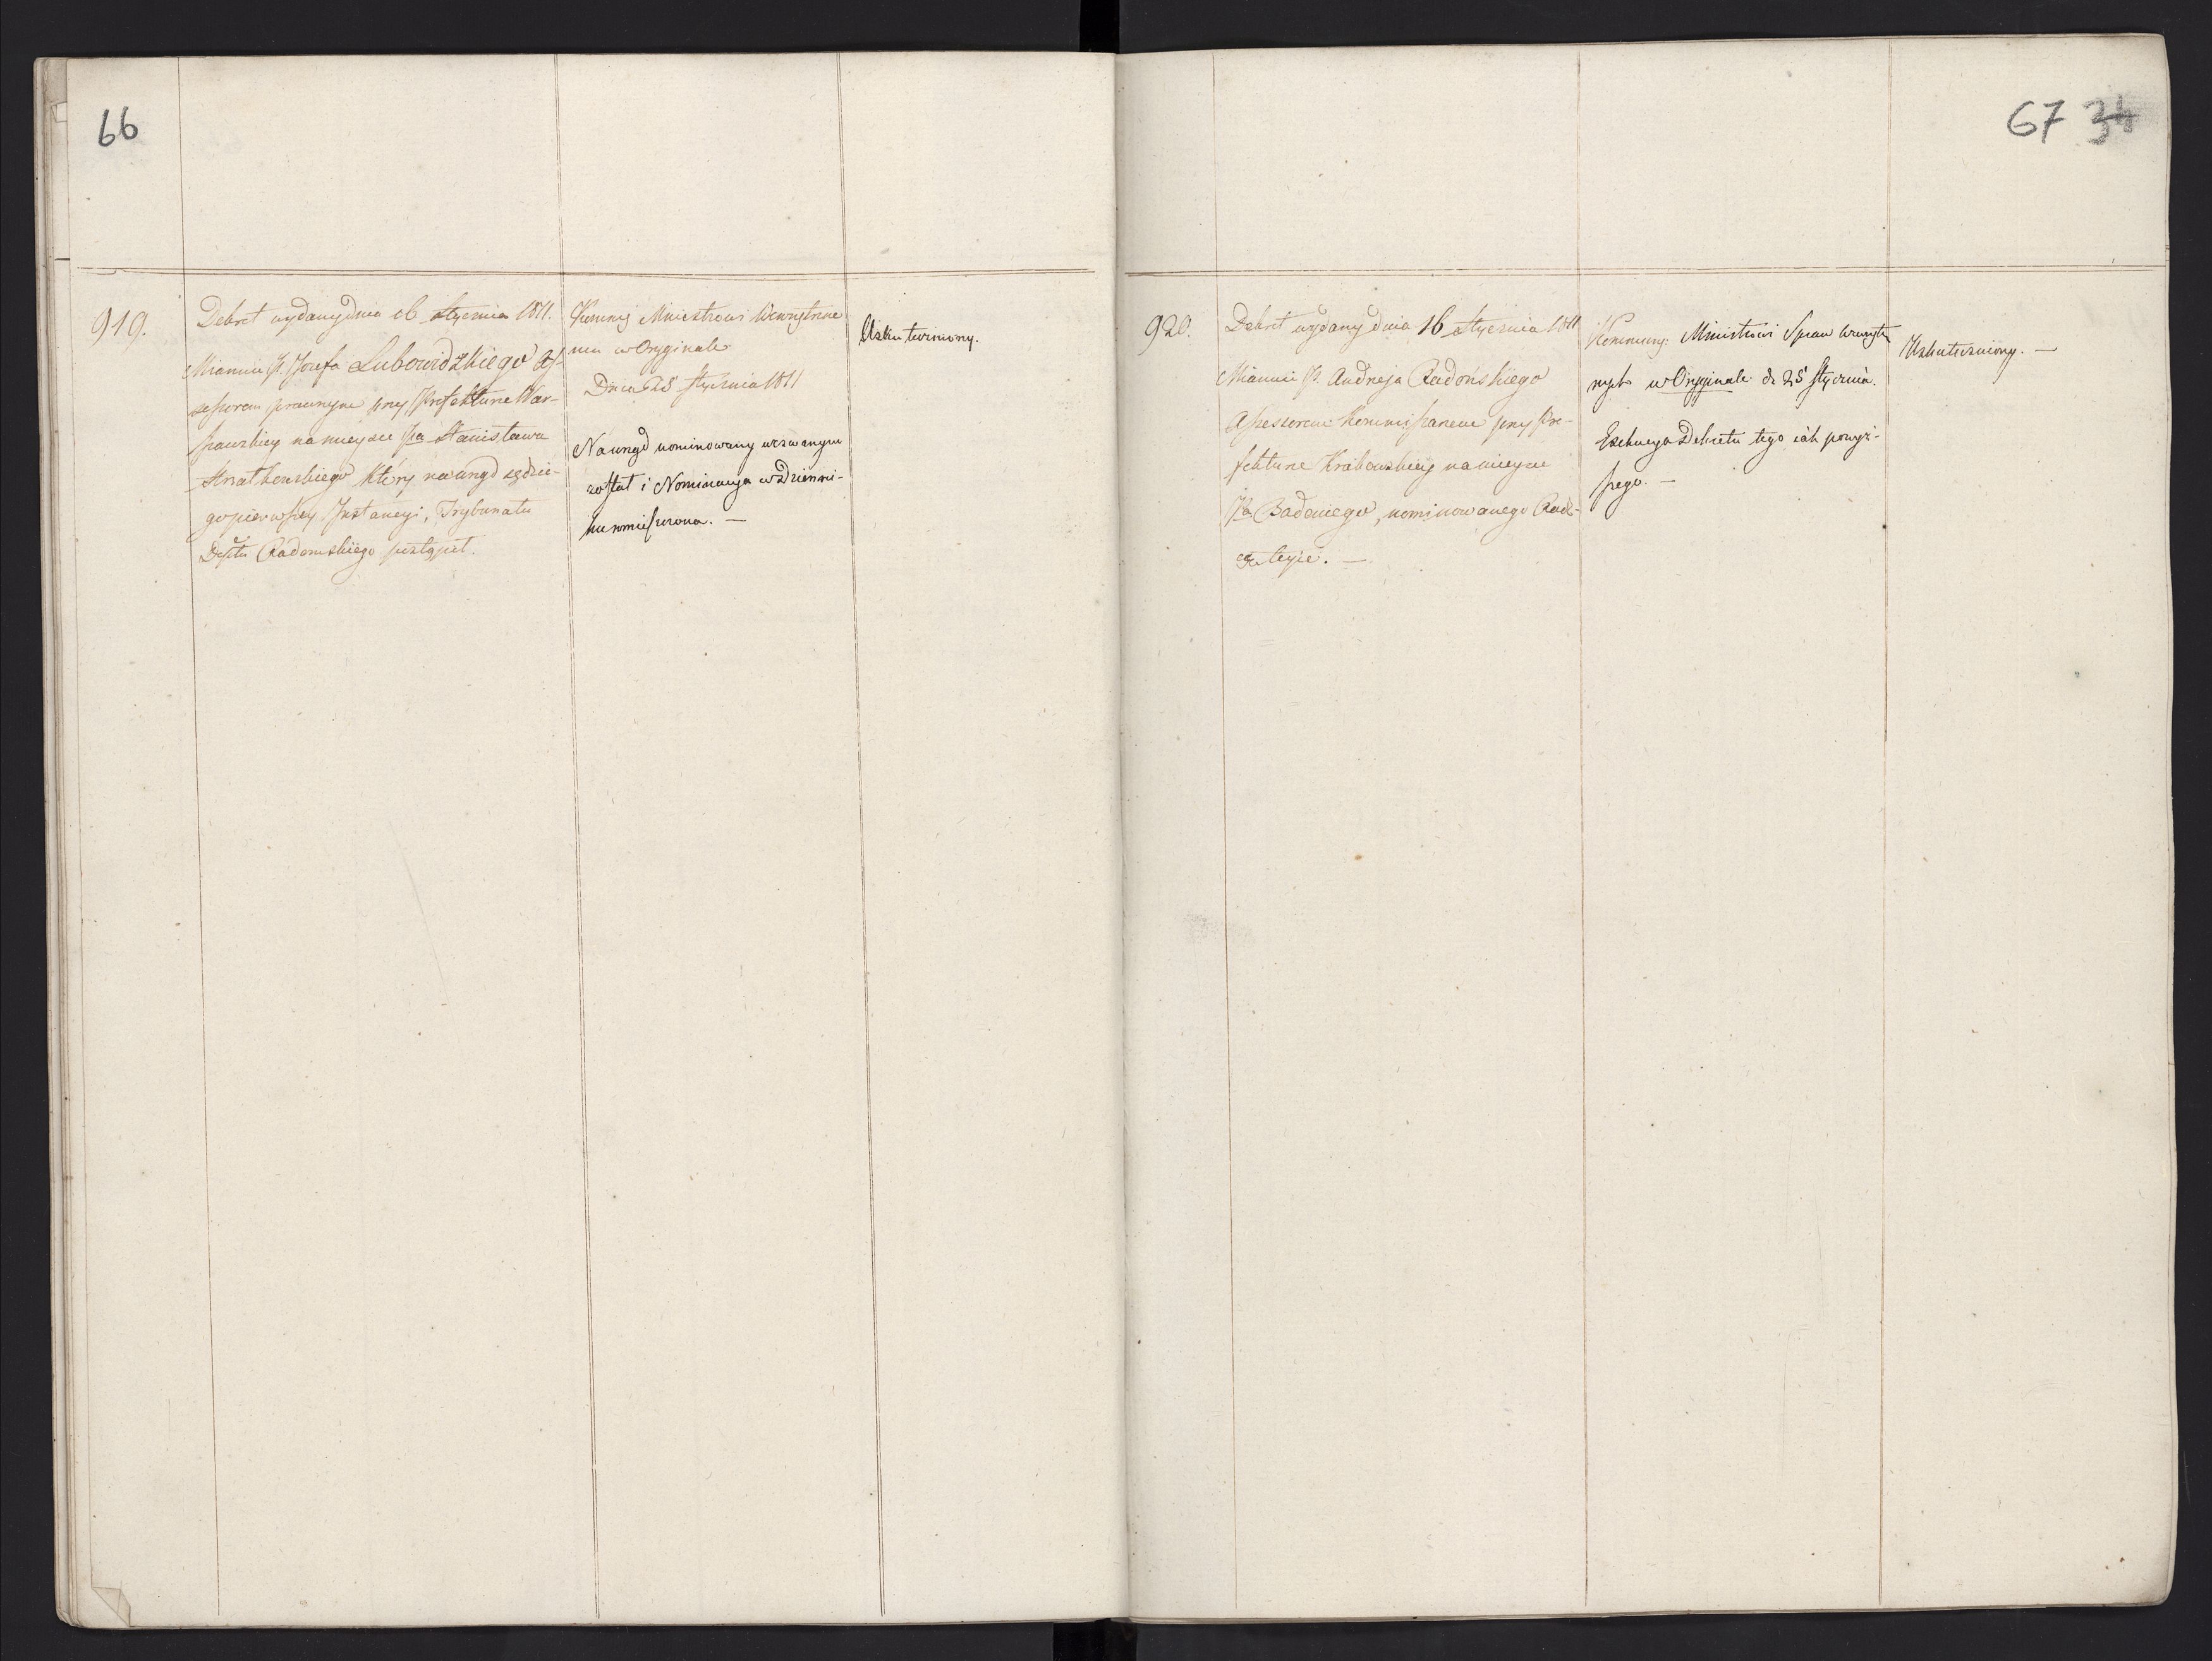 66
919.
Dekret wydany dnia 16 Stycznia 1811.
Mianuie P. Jozefa Lubowidzkiego As-
sessorem prawnym przy Prefekturze War-
szawskiey na mieysce Pa Stanisława
który na urząd sędzie-
go pierwszey Instancyi, Trybunału
Deptu Radomskiego postąpił.
Kommuny Ministrowi Wewnętrzne
mu w Oryginale
Dnia 25 Stycznia 1811
Na urząd nominowany wezwanym
został i Nominacya w Dzienni-
ku umieszczona. —
Uskuteczniony.
67 34
920.
Dekret wydany dnia 16 Stycznia 1811
Mianuie P. Andrzeja Radońskiego
Assessorem Kommissarzem przy Pre-
fekturze Krakowskiey na mieysce
Pa Badeniego, nominowanego Rad-
cą tejże. —
Kommuny: Ministrowi Spraw Wewnętrz
nych w Oryginale d. 25 Stycznia.
Exekucya Dekretu tego iák powyż-
szego. —
Uskuteczniony. —